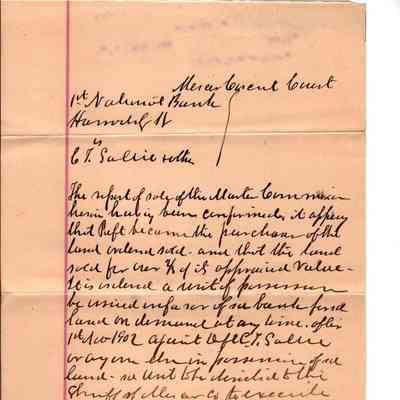 Mercer Circuit Court
1st National Bank
Harrodsbg Ky
vs
C T Sallee & other
The report of sale of the Master Commissioner
herein having been confirmed, it appearing
that Plft became the purchaser of the
land ordered sold - and that the land
sold for over 2/3 of its appraised value -
It is ordered a writ of possession
be issued in favor of said bank for sd
land on demand at any time after
1st Nov 1902 against Deft C.T. Sallee
or any one else in possession of sd
land - sd writ to be directed to the
Sheriff of Mercer Co to execute